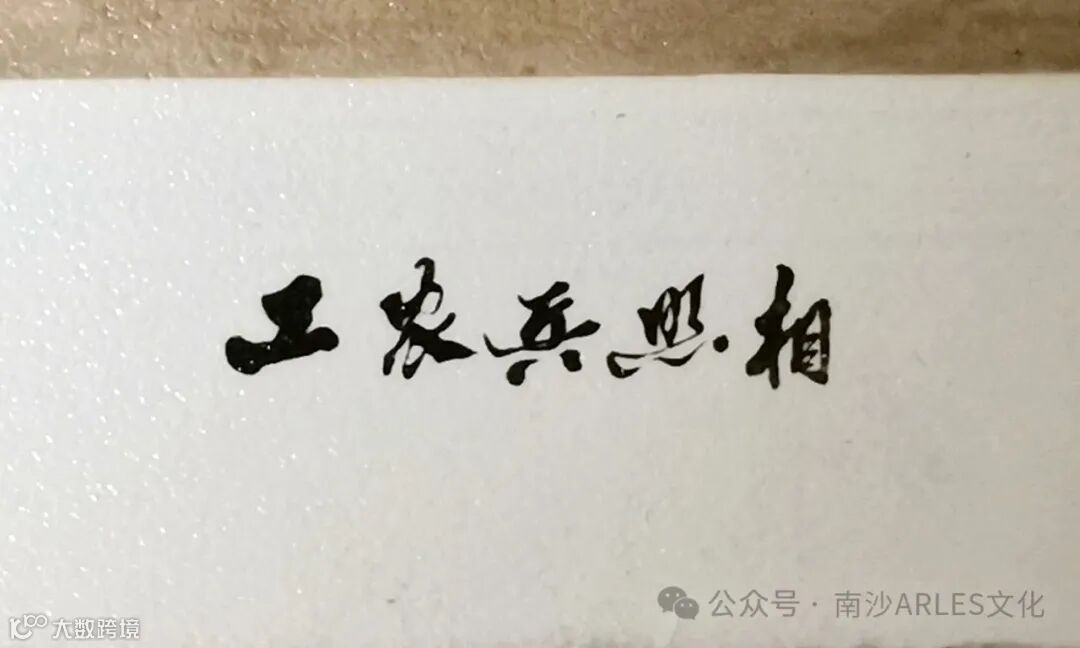 工农兵照相
公众号·南沙ARLES文化
大数跨境